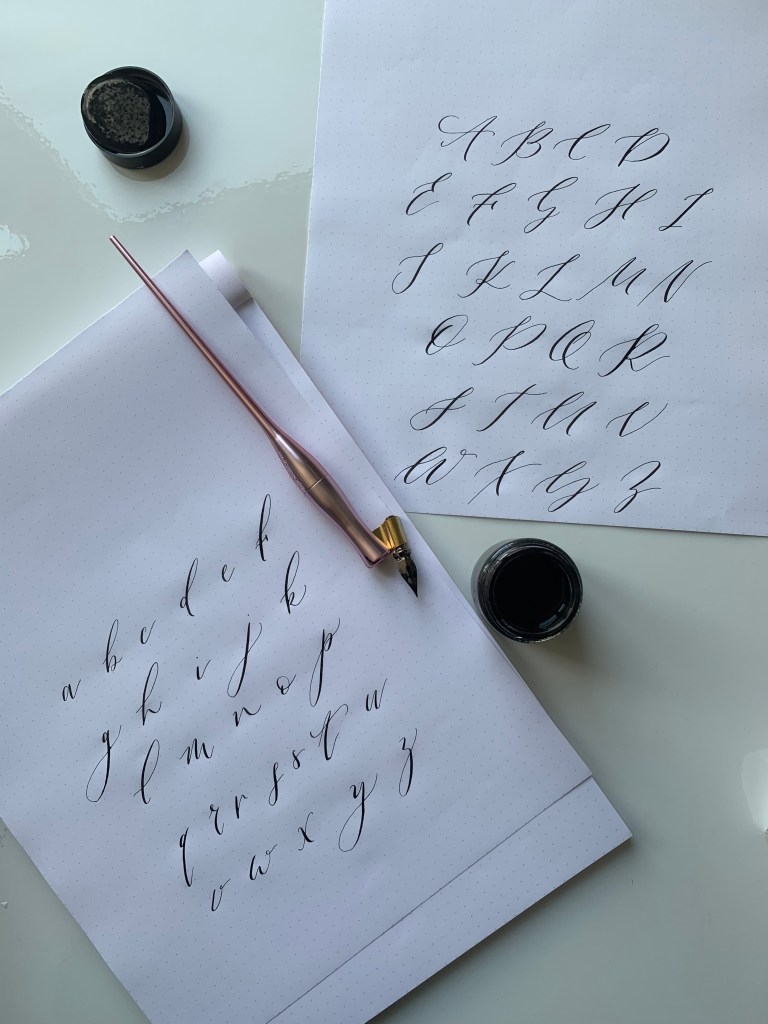 A B C D
E F G H I
J K L M N
O P Q R
S T U V
W X Y Z
a b c d e f
g h i j k
l m n o p
q r r s s t u
v w x y z